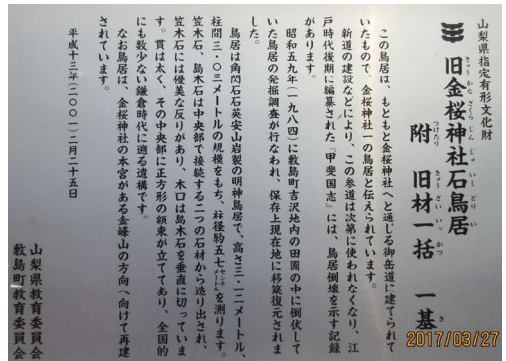 山梨県指定有形文化財
旧金桜神社石鳥居
きゅうかなざくらじんじゃいしどりい
附 旧材一括 一基
つけたり きゅうざいいっかつ き
この鳥居は、もともと金桜神社へと通じる御岳道に建てられて
いたもので、金桜神社一の鳥居と伝えられています。
新道の建設などにより、この参道は次第に使われなくなり、江
戸時代後期に編纂された『甲斐国志』には、鳥居倒壊を示す記録
があります。
昭和五九年(一九八四)に敷島町吉沢地内の田圃の中に倒伏して
いた鳥居の発掘調査が行なわれ、保存上現在地に移築復元されま
した。
鳥居は角閃石石英安山岩製の明神鳥居で、高さ三・一二メートル、
柱間三・〇三メートルの規模をもち、柱径約五七センチメートルを測ります。
笠木石、島木石は中央部で接続する二つの石材から造り出され、
笠木石には優美な反りがあり、木口は島木石を垂直に切っていま
す。貫は太く、その中央部に正方形の額束が立てており、全国的
にも数少ない鎌倉時代に遡る遺構です。
なお鳥居は、金桜神社の本宮がある金峰山の方向へ向けて再建
されています。
平成十三年(二〇〇一)二月二十五日
山梨県教育委員会
敷島町教育委員会
2017/03/27